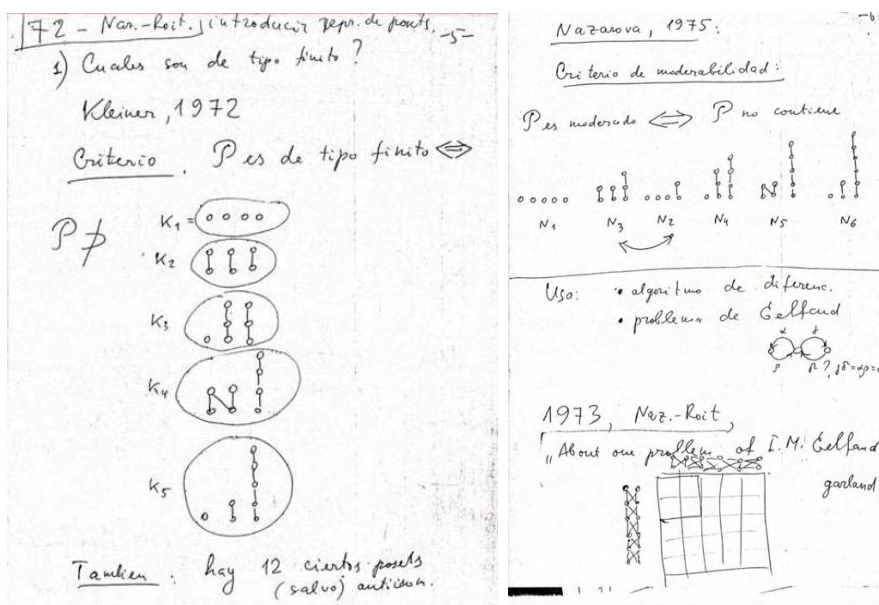 72 – Naz.-Roit. introducir repr. de posets. -5-
1) Cuales son de tipo finito?
Kleiner, 1972
Criterio. P es de tipo finito ⇔
P ⊅
K1 =
K2
K3
K4
K5
Tambien: hay 12 ciertos posets
(salvo) antiisom.
-6
Nazarova, 1975:
Criterio de moderabilidad:
P es moderado ⇔ P no contiene
N1 N3 N2 N4 N5 N6
Usa: • algoritmo de diferenc.
• problema de Gelfand
1973, Naz.-Roit,
"About one problem of I.M. Gelfand
garland